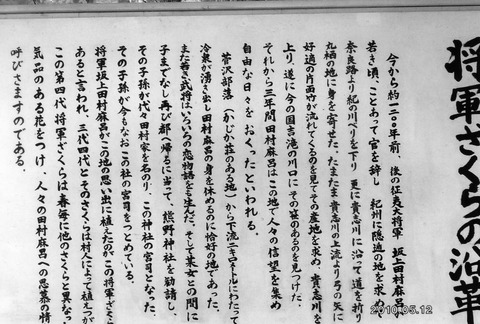 将軍ざくらの沿革
今から約一二〇〇年前、後の征夷大将軍 坂上田村麻呂が
若き頃、ことあって官を辞し 紀州に隠遁の地を求め、
奈良路より紀の川べりを下り 更に貴志川に沿って道を折り
丸栖の地に身を寄せた。たまたま貴志川の上流より弓の矢に
好適の片面竹が流れてくるのを見てその産地を求め 貴志川を
上り、遂に今の国吉滝の川口にその笹のあるのを見つけた。
それから三年間田村麻呂はこの地で人々の信望を集め
自由な日々をおくったといわれる。
菅沢部落（かじか荘のある地）から下流二キロメートルにわたって
冷泉が湧き出し田村麻呂の身を休めるのに恰好の地であった。
また若き武将はいろいろの恋物語をも生んだ そして某女との間に
子までなし再び都へ帰るに当って、熊野神社を勧請し、
その子孫が代々田村家を名のり、この神社の宮司となった。
その子孫が今もなおこの社の宮司をつとめている。
将軍坂上田村麻呂がこの地の思い出に植えたのがこの将軍ざくら
あると言われ、三代四代とそのさくらは村人によって植えつが
この第四代将軍ざくらは春毎に他のさくらと異なっ
気品のある花をつけ、人々の田村麻呂への思慕の情
呼びさますのである。
2010.05.12